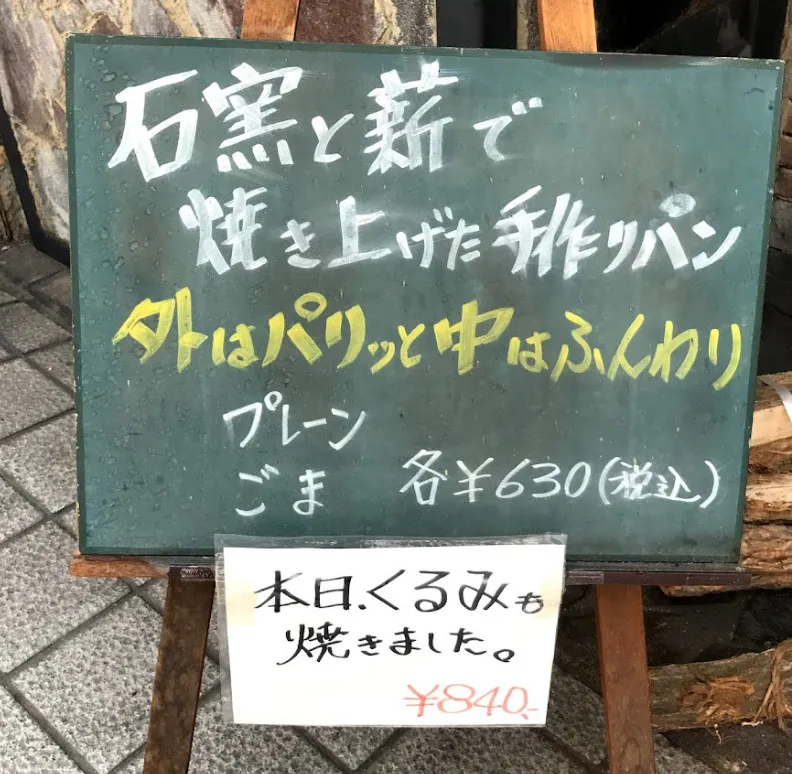 石窯と薪で
焼き上げた手作りパン
外はパリッと中はふんわり
プレーン
ごま 各¥630(税込)
本日、くるみも
焼きました。
¥840.-